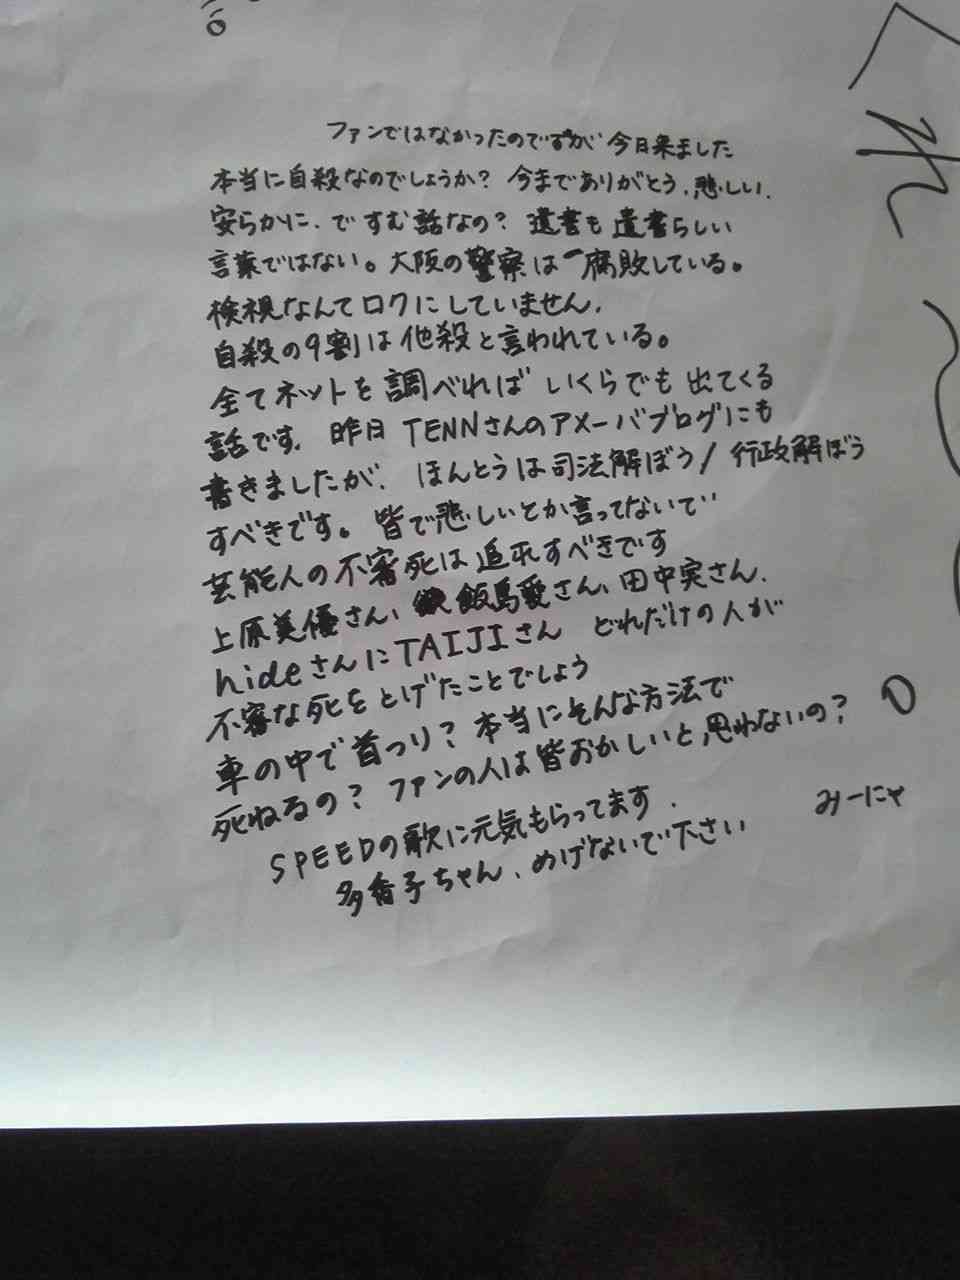 ファンではなかったのですが 今日来ました
本当に自殺なのでしょうか? 今まで ありがとう、悲しい、
安らかに、で すむ話なの? 遺書も 遺書らしい
言葉ではない。大阪の警察は 腐敗している。
検視なんてロクにしていません、
自殺の9割は他殺と言われている。
全てネットを調べれば いくらでも 出てくる
話です、昨日 TENNさんのアメーバブログにも
書きましたが、ほんとうは司法解ぼう/行政解ぼう
すべきです。皆で悲しいとか言ってないで
芸能人の不審死は追求すべきです
上原美優さん、飯島愛さん、田中実さん、
hideさんにTAIJIさん どれだけの人が
不審な死をとげたことでしょう
車の中で首つり? 本当にそんな方法で
死ねるの? ファンの人は皆おかしいと思わないの?
SPEEDの歌に元気もらってます、
みーにゃ
多香子ちゃん、めげないで下さい